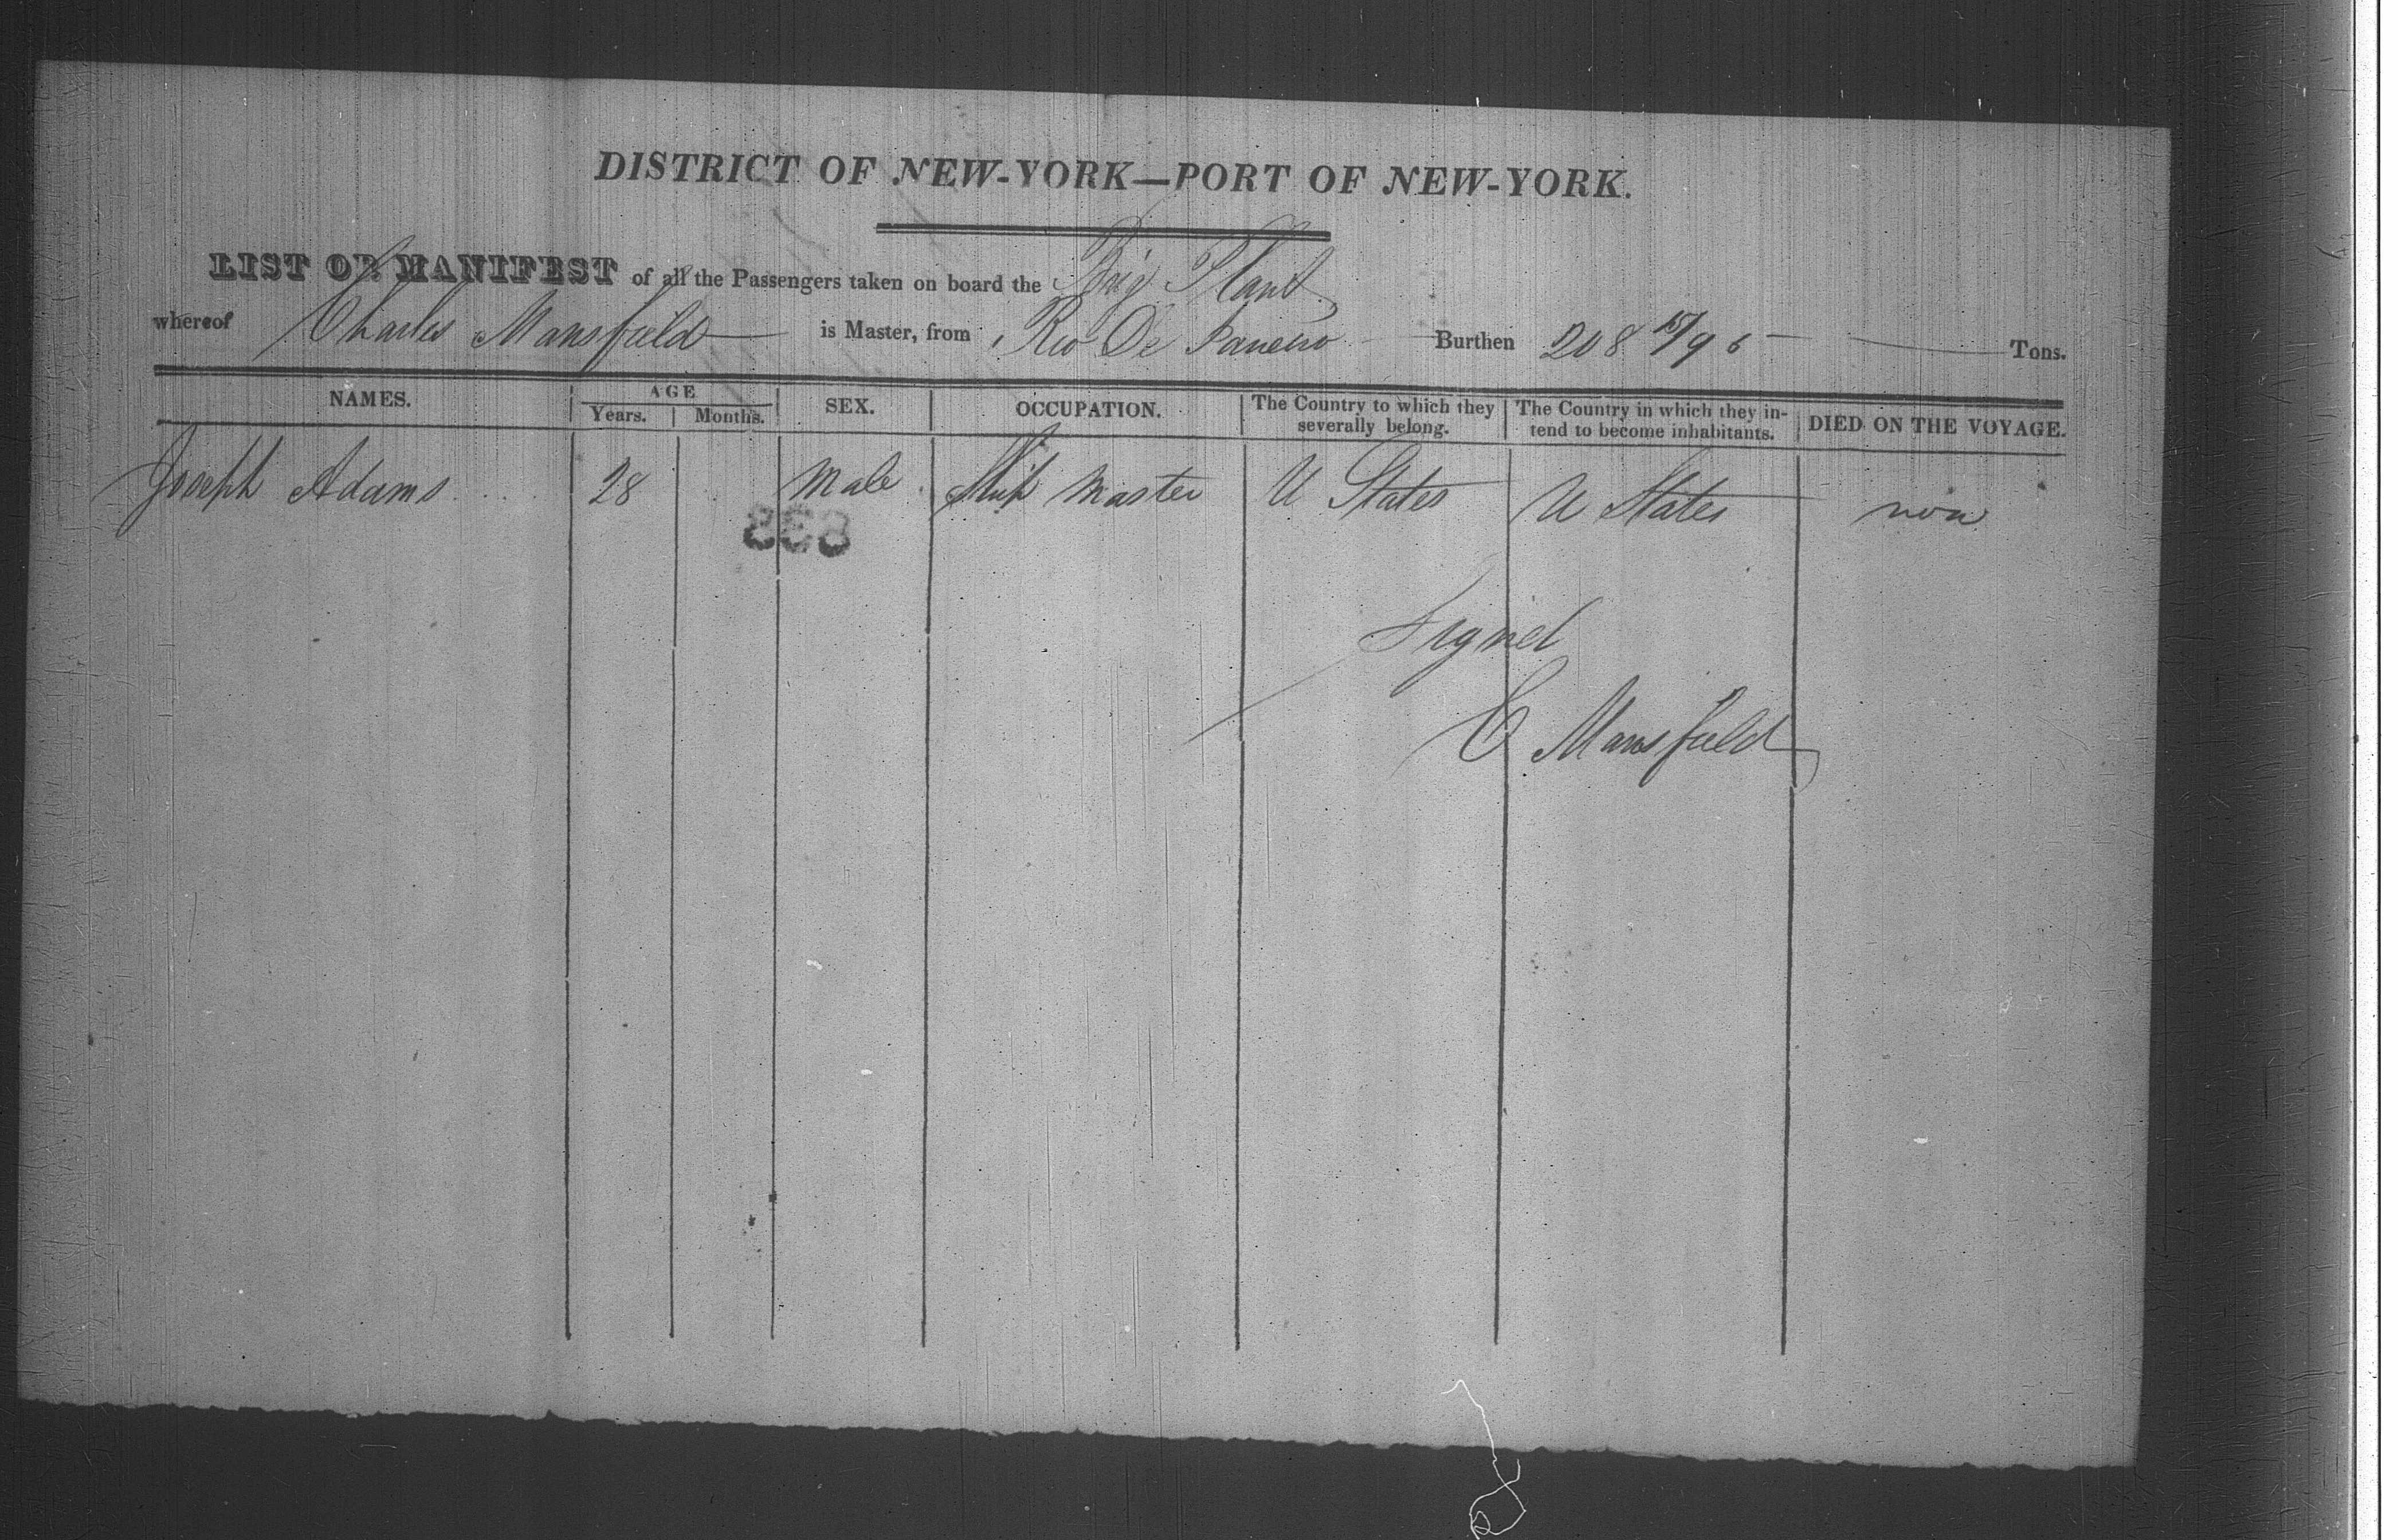 DISTRICT OF NEW-YORK—PORT OF NEW-YORK.
LIST OR MANIFEST of all the Passengers taken on board the Brig Plant
whereof Charles Mansfield is Master, from Rio De Janeiro Burthen 208 15/95 Tons.
NAMES. AGE Years. Months. SEX. OCCUPATION. The Country to which they severally belong. The Country in which they intend to become inhabitants. DIED ON THE VOYAGE.
Joseph Adams 28 Male Ship Master U States U States non
Signed
C Mansfield